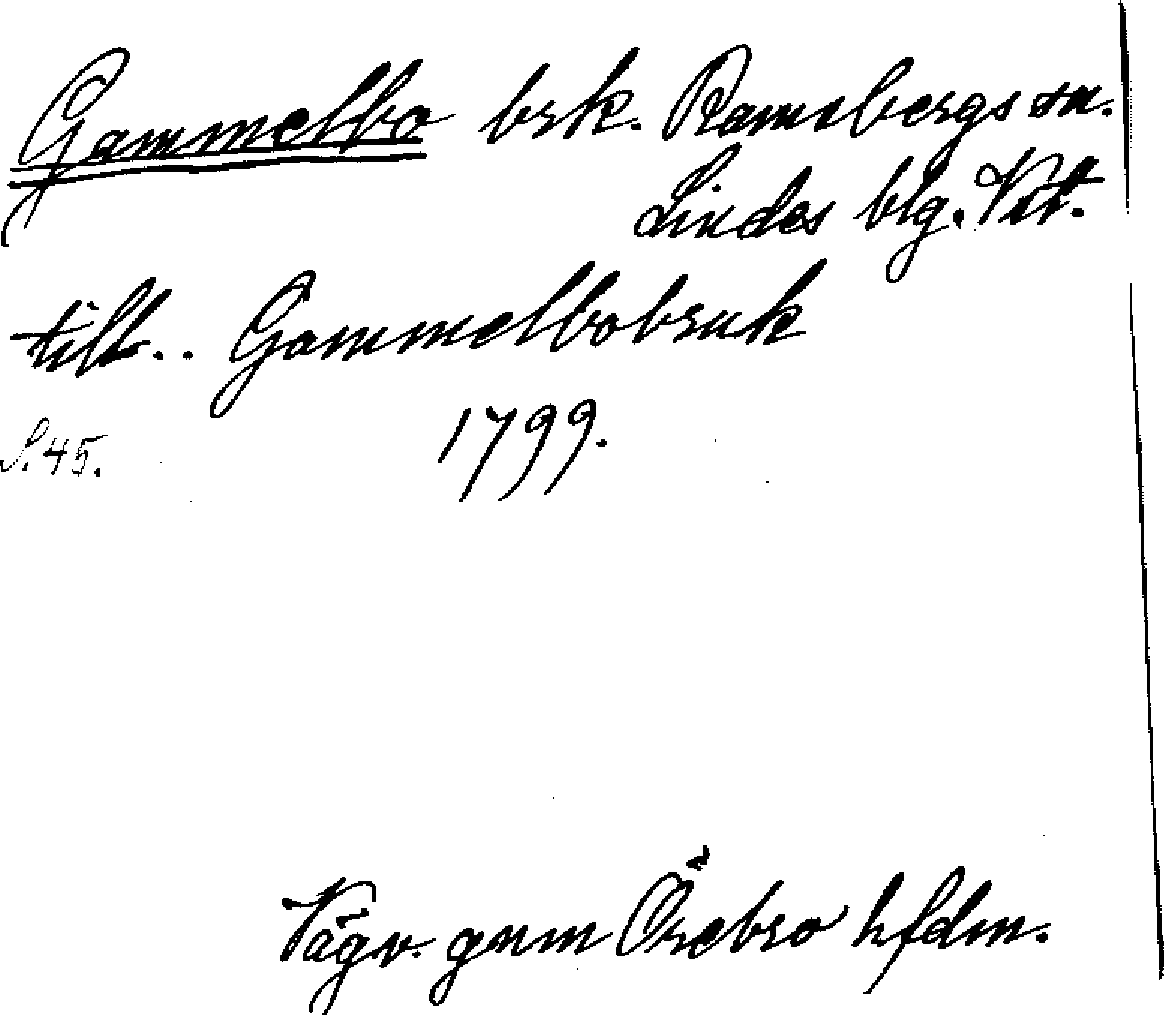 Gammelbo brk. Ramsbergs sn.
Lindes blg. Vstl.
till.. Gammelbobruk
S. 45. 1799.
Vägv. gnm Örebro hfdm.